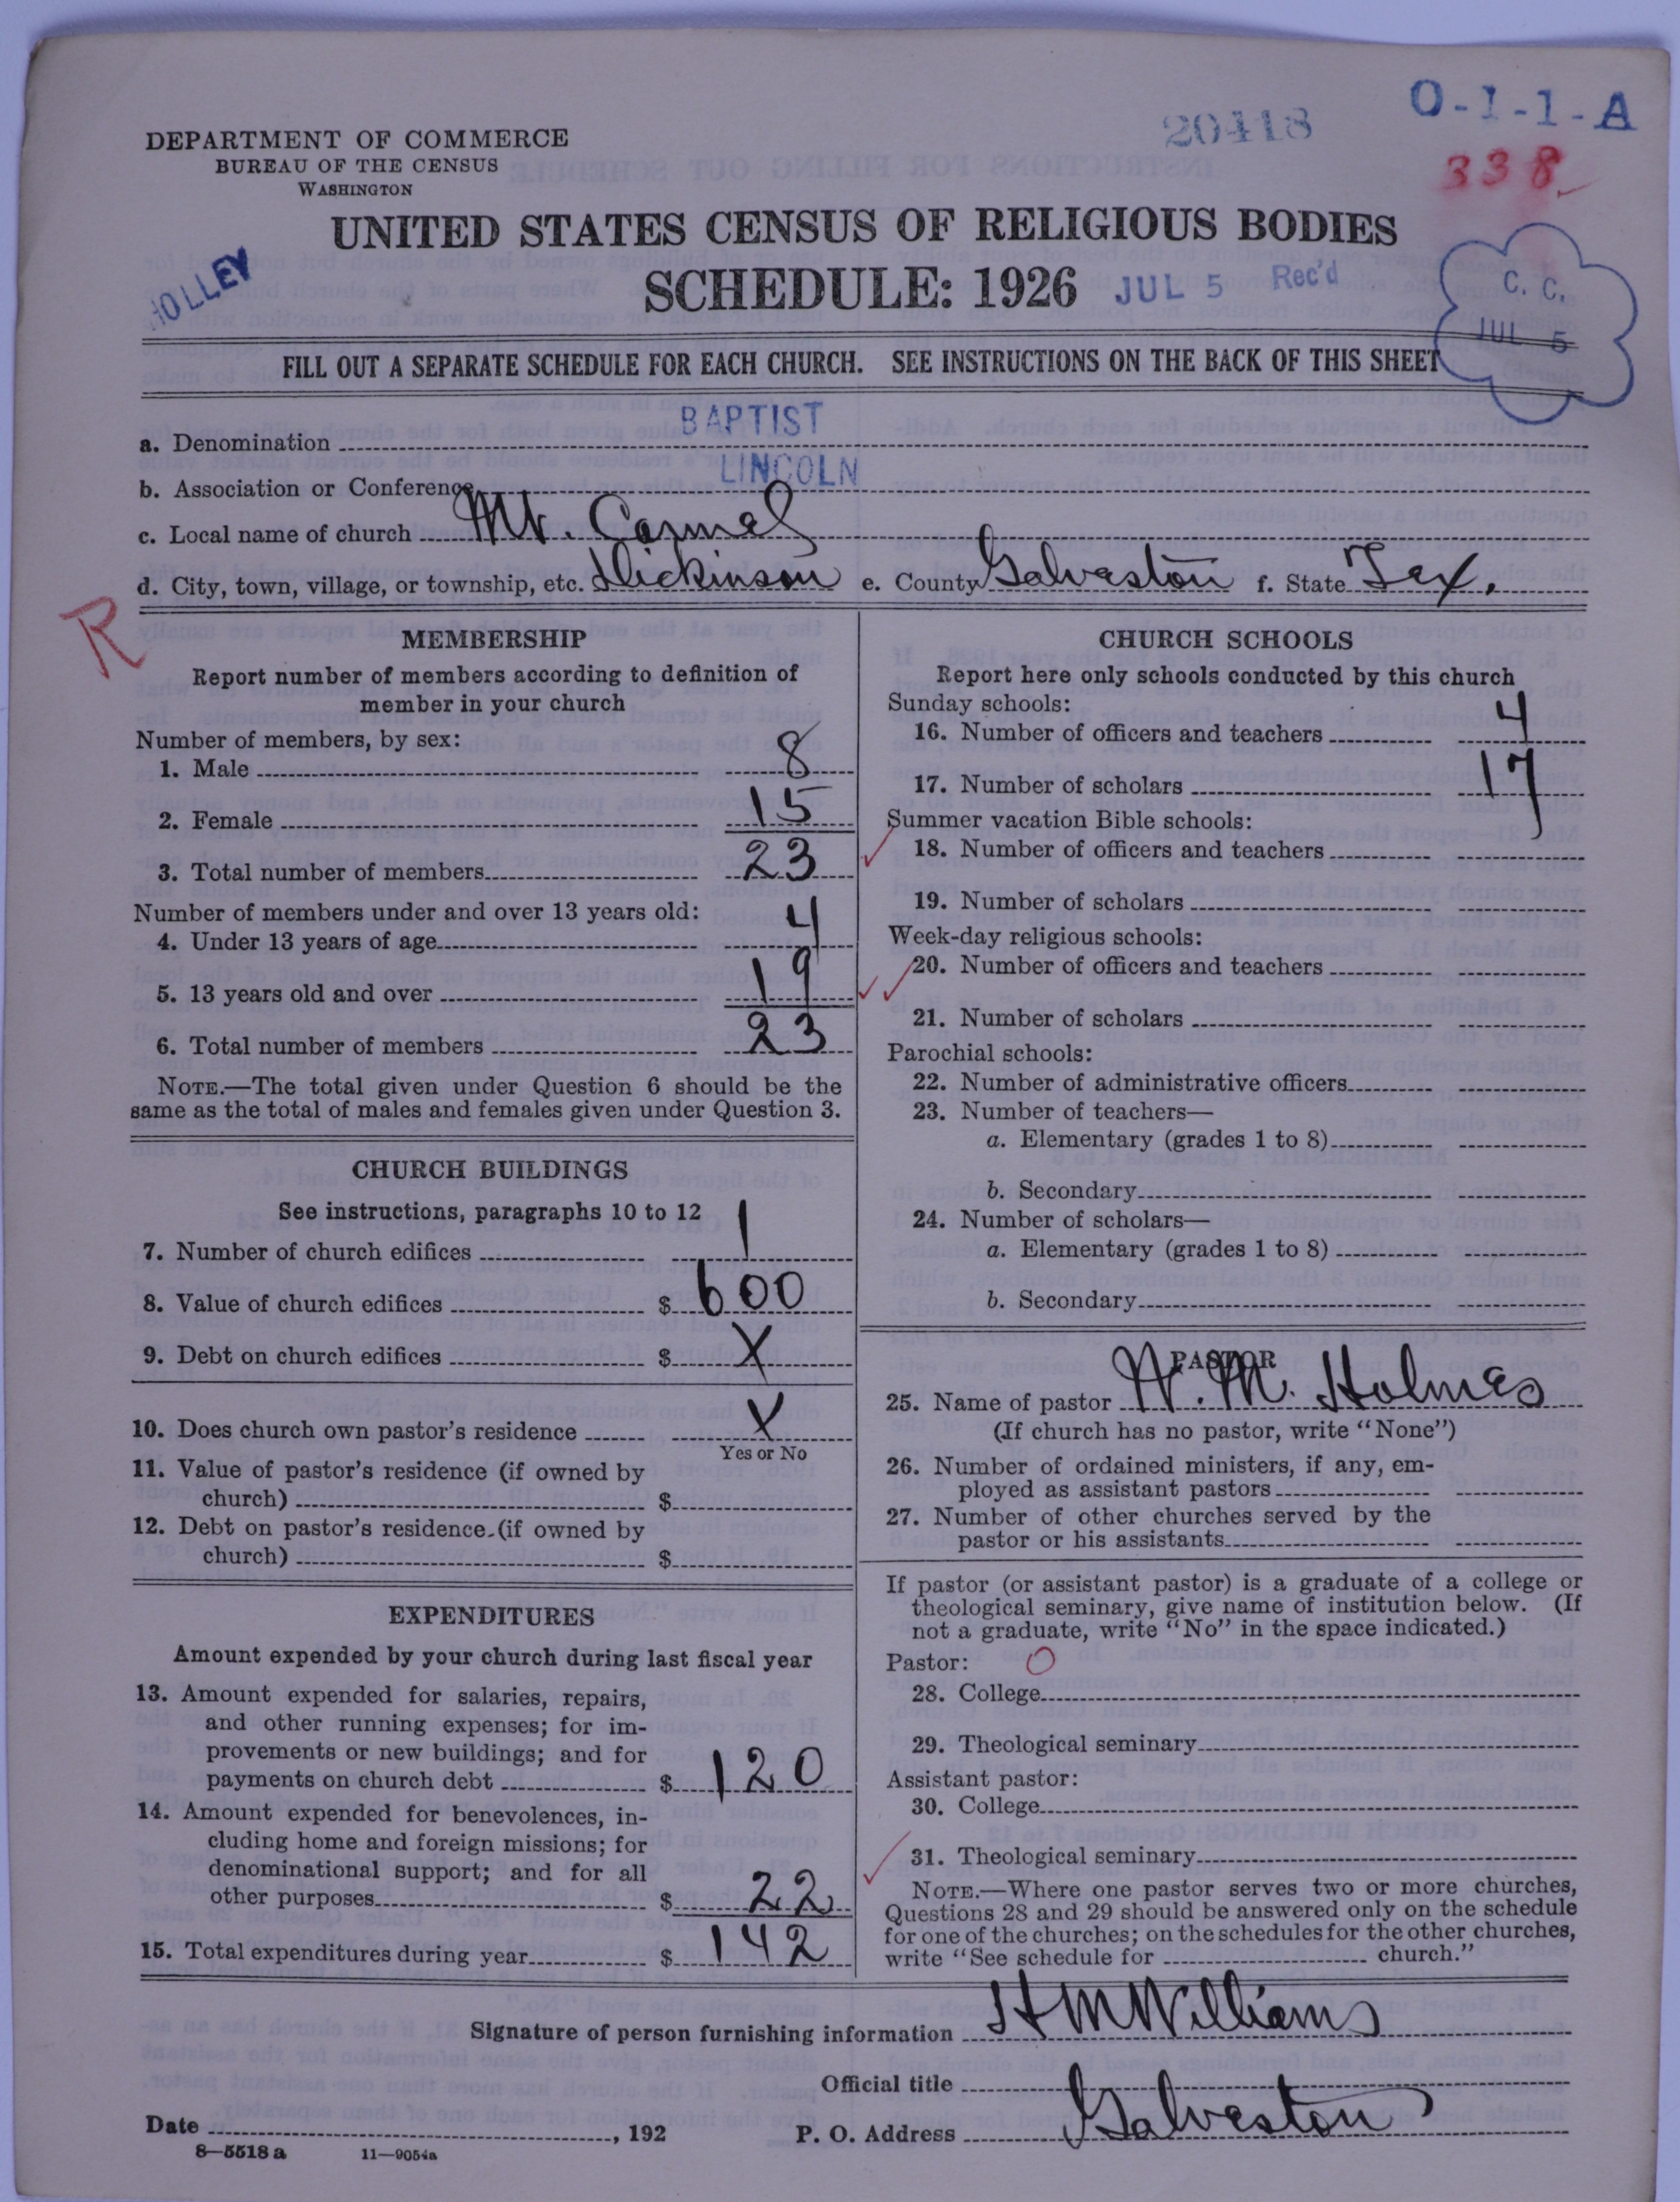 DEPARTMENT OF COMMERCE
BUREAU OF THE CENSUS
WASHINGTON
20418
O-1-1-A
338
UNITED STATES CENSUS OF RELIGIOUS BODIES
HOLLEY
SCHEDULE: 1926
JUL 5 Rec'd
C. C.
JUL 5
FILL OUT A SEPARATE SCHEDULE FOR EACH CHURCH. SEE INSTRUCTIONS ON THE BACK OF THIS SHEET
a. Denomination BAPTIST
b. Association or Conference LINCOLN
c. Local name of church Mt. Carmel
d. City, town, village, or township, etc. Dickinson e. County Galveston f. State Tex.
R
MEMBERSHIP
Report number of members according to definition of
member in your church
Number of members, by sex:
1. Male 8
2. Female 15
3. Total number of members 23
Number of members under and over 13 years old:
4. Under 13 years of age 4
5. 13 years old and over 19
6. Total number of members 23
NOTE.—The total given under Question 6 should be the
same as the total of males and females given under Question 3.
CHURCH BUILDINGS
See instructions, paragraphs 10 to 12
7. Number of church edifices 1
8. Value of church edifices $ 600
9. Debt on church edifices $ X
10. Does church own pastor's residence X
Yes or No
11. Value of pastor's residence (if owned by
church) $
12. Debt on pastor's residence (if owned by
church) $
EXPENDITURES
Amount expended by your church during last fiscal year
13. Amount expended for salaries, repairs,
and other running expenses; for im-
provements or new buildings; and for
payments on church debt $ 120
14. Amount expended for benevolences, in-
cluding home and foreign missions; for
denominational support; and for all
other purposes $ 22
15. Total expenditures during year $ 142
CHURCH SCHOOLS
Report here only schools conducted by this church
Sunday schools:
16. Number of officers and teachers 4
17. Number of scholars 17
Summer vacation Bible schools:
18. Number of officers and teachers
19. Number of scholars
Week-day religious schools:
20. Number of officers and teachers
21. Number of scholars
Parochial schools:
22. Number of administrative officers
23. Number of teachers—
a. Elementary (grades 1 to 8)
b. Secondary
24. Number of scholars—
a. Elementary (grades 1 to 8)
b. Secondary
PASTOR
25. Name of pastor W. M. Holmes
(If church has no pastor, write "None")
26. Number of ordained ministers, if any, em-
ployed as assistant pastors
27. Number of other churches served by the
pastor or his assistants
If pastor (or assistant pastor) is a graduate of a college or
theological seminary, give name of institution below. (If
not a graduate, write "No" in the space indicated.)
Pastor: O
28. College
29. Theological seminary
Assistant pastor:
30. College
31. Theological seminary
NOTE.—Where one pastor serves two or more churches,
Questions 28 and 29 should be answered only on the schedule
for one of the churches; on the schedules for the other churches,
write "See schedule for church."
Signature of person furnishing information H M Williams
Official title
Date , 192 P. O. Address Galveston
8—5518 a 11—9054a